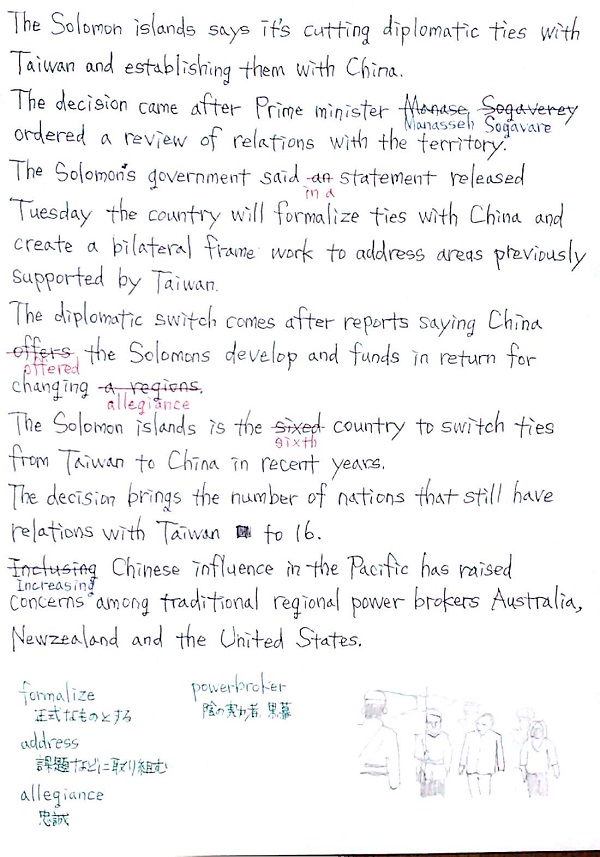 The Solomon islands says it's cutting diplomatic ties with
Taiwan and establishing them with China.
The decision came after Prime minister Manase Sogaverey
Manasseh Sogavare
ordered a review of relations with the territory.
The Solomon's government said an statement released
in a
Tuesday the country will formalize ties with China and
create a bilateral frame work to address areas previously
supported by Taiwan.
The diplomatic switch comes after reports saying China
offers the Solomons develop and funds in return for
offered
changing a regions.
allegiance
The Solomon islands is the sixed country to switch ties
sixth
from Taiwan to China in recent years.
The decision brings the number of nations that still have
relations with Taiwan to 16.
Inclusing Chinese influence in the Pacific has raised
Increasing
concerns among traditional regional power brokers Australia,
Newzealand and the United States.
formalize
正式なものとする
address
課題などに取り組む
allegiance
忠誠
powerbroker
陰の実力者, 黒幕